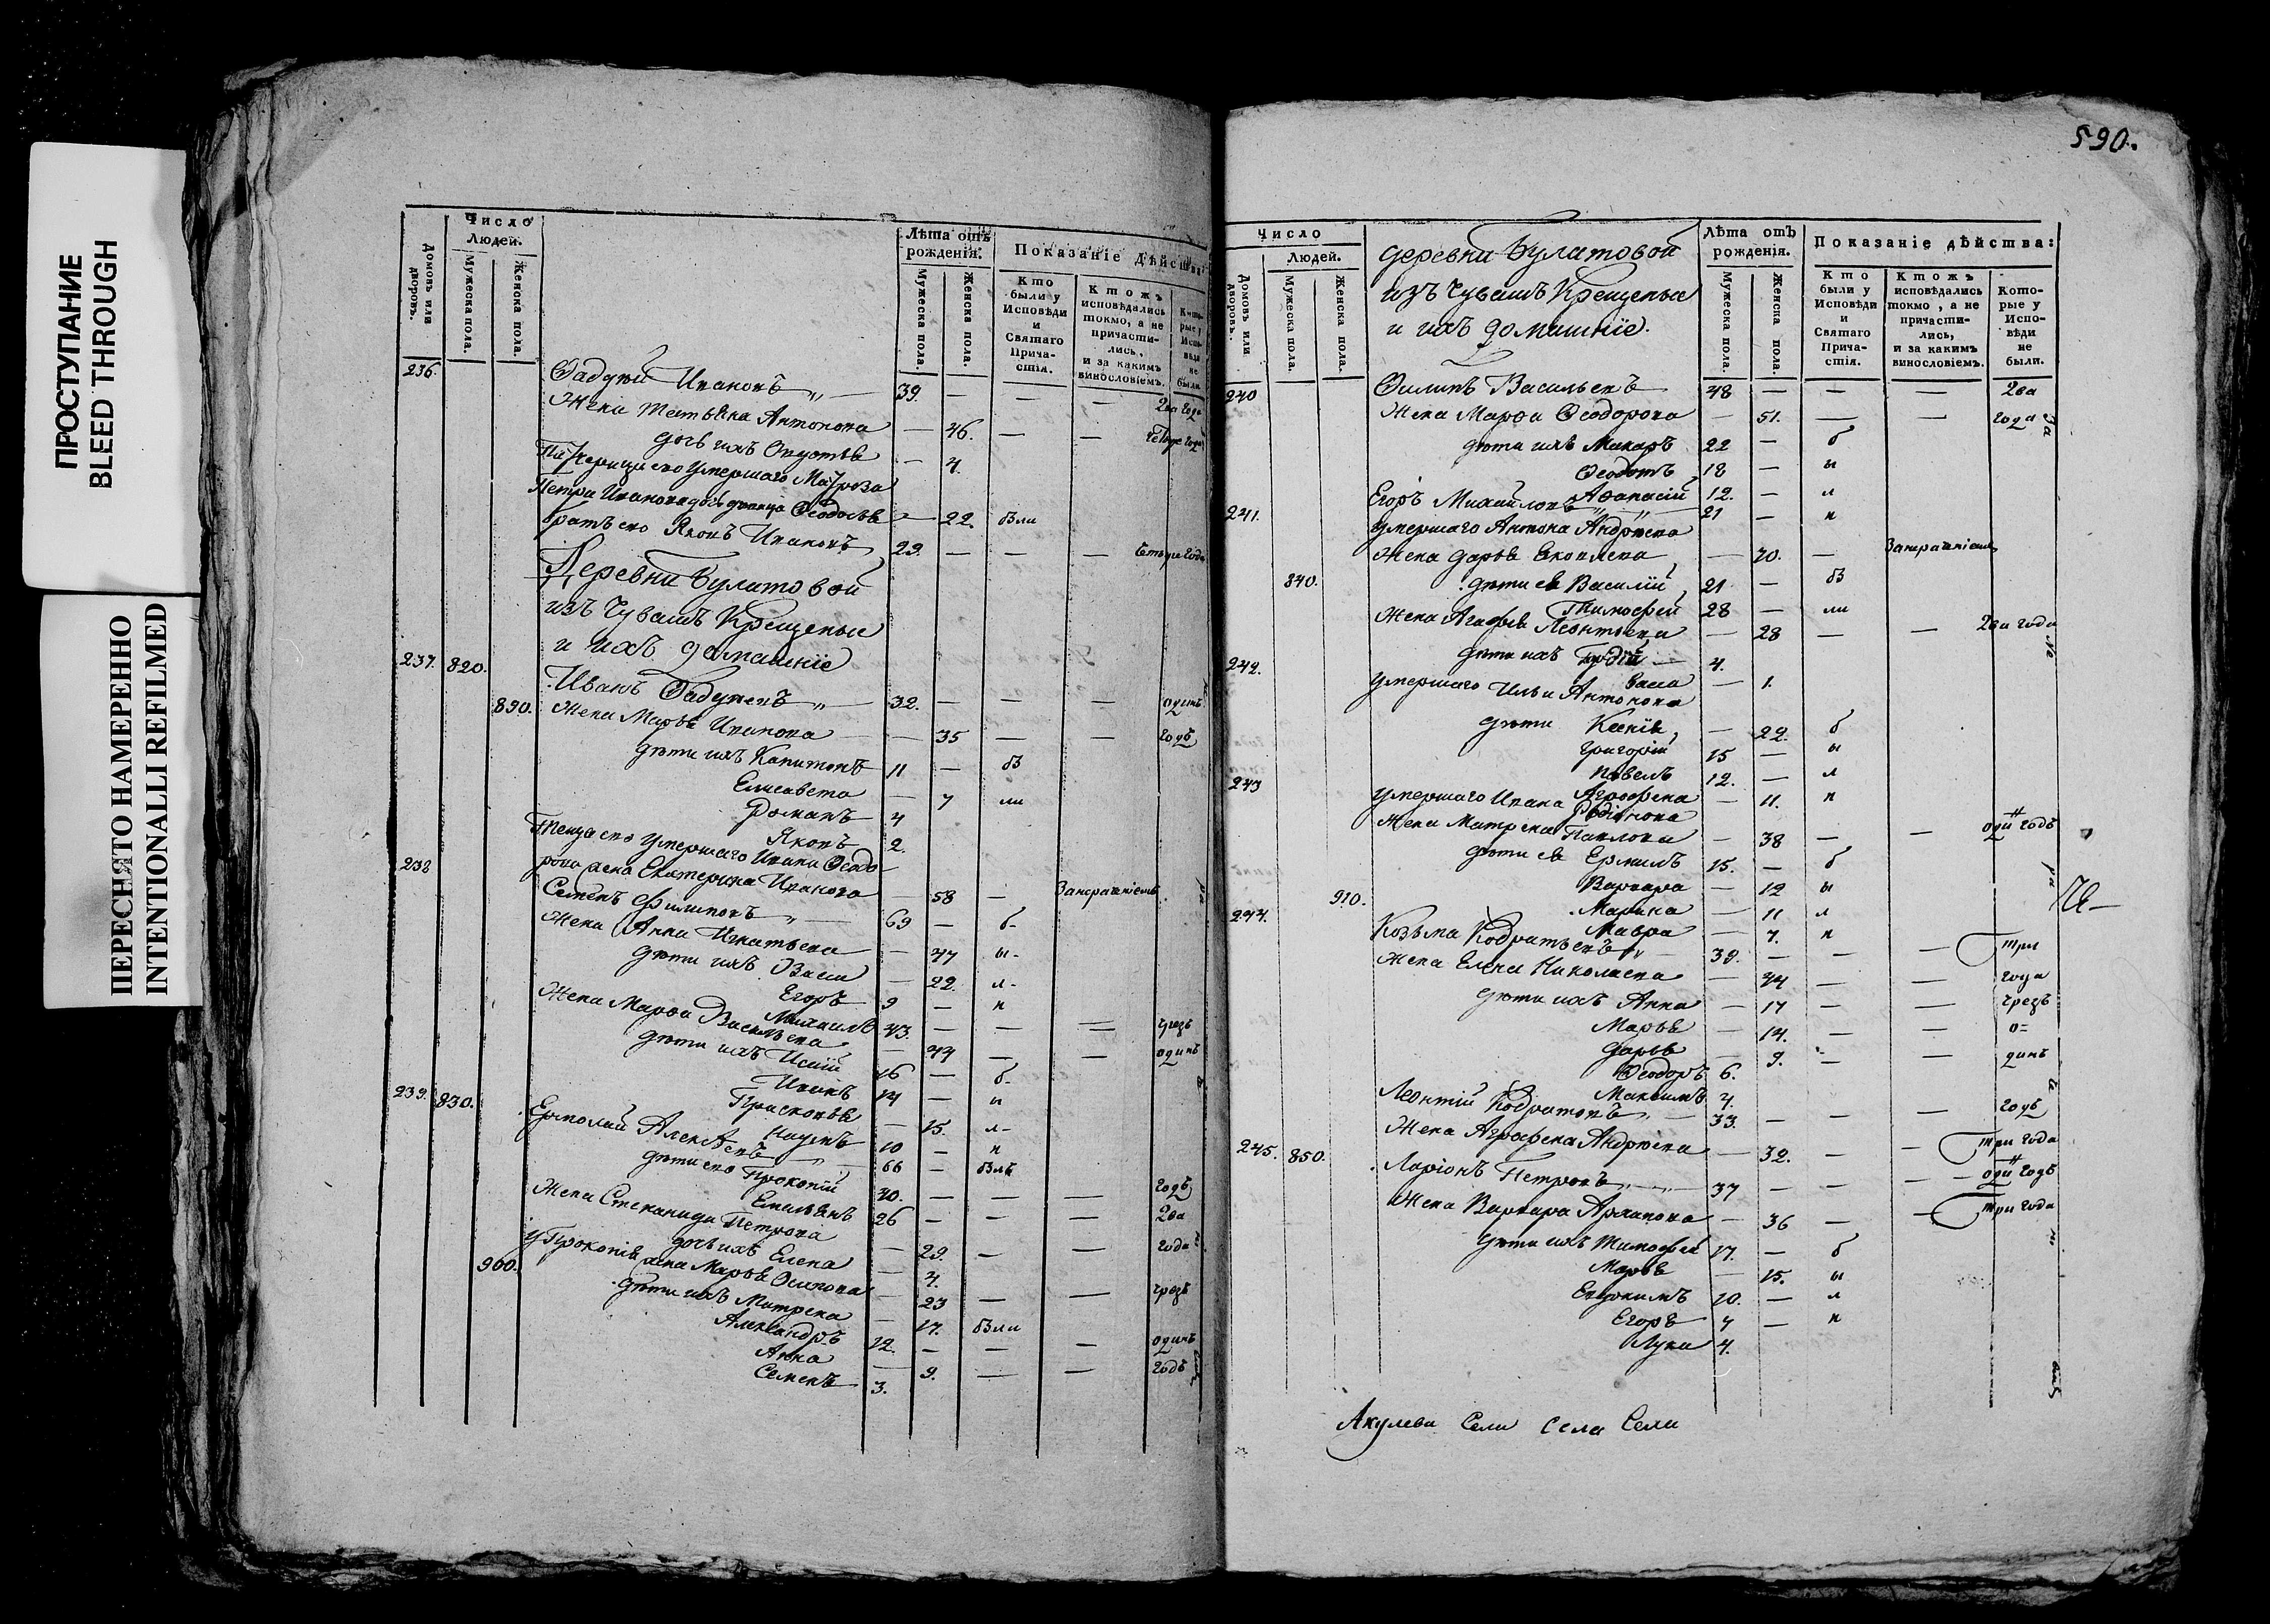 ПРОСТУПАНИЕ
BLEED THROUGH
ПЕРЕСНЯТО НАМЕРЕННО
INTENTIONALLI REFILMED
Число
Людей.
Домовъ или дворовъ.
Мужеска пола.
Женска пола.
Лѣта отъ рожденія.
Мужеска пола.
Женска пола.
Показаніе дѣйства:
Кто были у Исповѣди и Святаго Прича-стія.
Ктожъ исповѣдались токмо, а не причасти-лись, и за какимъ винословіемъ.
Кото-рые у Испо-вѣди не были.
236.
Ивановъ 39. — — — два года
Жена Татьяна Антонова — 46. — —
дочь ихъ — 4.
умершаго
Петра Иванова — 22. были
братъ его Яковъ Ивановъ 29. — — —
Деревни Булатовой
изъ Чувашъ Крещеные
и ихъ домашніе
237. 820. Иванъ 32. — — — одинъ
890. Жена Марья Иванова — 35 — — годъ
дѣти ихъ Капитонъ 11 — бы
Елисавета — 7 ли
Романъ 4
Яковъ 2.
Теща его умершаго Ивана Ѳеодо-
рова жена Екатерина Иванова — 58 —
238 Семенъ Филиповъ 69 — б-
Жена Анна Игнатьева — 47 ы-
дѣти ихъ Васса — 22. л-
Егоръ 9 — и
Михаилъ 43. — — — чрезъ
Жена Марѳа Васильева — 44 — — одинъ
дѣти ихъ 16 — б-
Иванъ 14 — ы
Прасковья — 15. л-
Наумъ 10 — и
239. 830. Ермолай 66 — былъ
дѣти его Прокопій 30. — — — годъ
Емельянъ 26 — — — два
Жена Степанида Петрова — 29. — — года
дочь ихъ Елена — 4.
900. У Прокопія жена Марья Осипова — 23 — — чрезъ
дѣти ихъ Матрена — 17. были
Александръ 12. — — — одинъ
Анна — 9. — — годъ
Семенъ 3.
590.
Число
Людей.
Домовъ или дворовъ.
Мужеска пола.
Женска пола.
деревни Булатовой
изъ Чувашъ Крещеные
и ихъ домашніе.
Лѣта отъ рожденія.
Мужеска пола.
Женска пола.
Показаніе дѣйства:
Кто были у Исповѣди и Святаго Прича-стія.
Ктожъ исповѣдались токмо, а не причасти-лись, и за какимъ винословіемъ.
Кото-рые у Испо-вѣди не были.
240 Филипъ Васильевъ 48 — — — два
Жена Марѳа Ѳеодорова — 51. — — года
дѣти ихъ Макаръ 22 — б
Ѳеодотъ 18 — ы
Аѳанасій 12. — л
241. Егоръ Михайловъ 21 — и
умершаго Антона Андреева
Жена Дарья — 70. —
840. дѣти ея Василій 21 — бы
Тимоѳей 28 — ли
Жена Агаѳья Леонтьева — 28 — — два года
дѣти ихъ 4.
Васса — 1.
242. умершаго Ильи Антонова
дѣти Ксенія — 22. б
Григорій 15 — ы
Павелъ 12. — л
Аграфена — 11. и
243 умершаго Ивана Родіонова
Жена Матрена Павлова — 38 — — одинъ годъ
дѣти ея Ермилъ 15. — б
Варвара — 12 ы
910. Марина — 11 л
Мавра — 7. и
244. Козьма Кодратьевъ 39. — — — три
Жена Елена Николаева — 44 — — года
дѣти ихъ Анна — 17 — — чрезъ
Марья — 14. — — о=
Дарья — 9. — — динъ
Ѳеодоръ 6.
Максимъ 4.
Леонтій Кодратовъ 33. — — — годъ
Жена Аграфена Андреева — 32. — — три года
245. 850. Ларіонъ Петровъ 37 — — — одинъ годъ
Жена Варвара — 36 — — три года
дѣти ихъ Тимоѳей 17. — б
Марья — 15. ы
Евдокимъ 10. — л
Егоръ 7 — и
Лука 4.
Акулева Сели села Сели